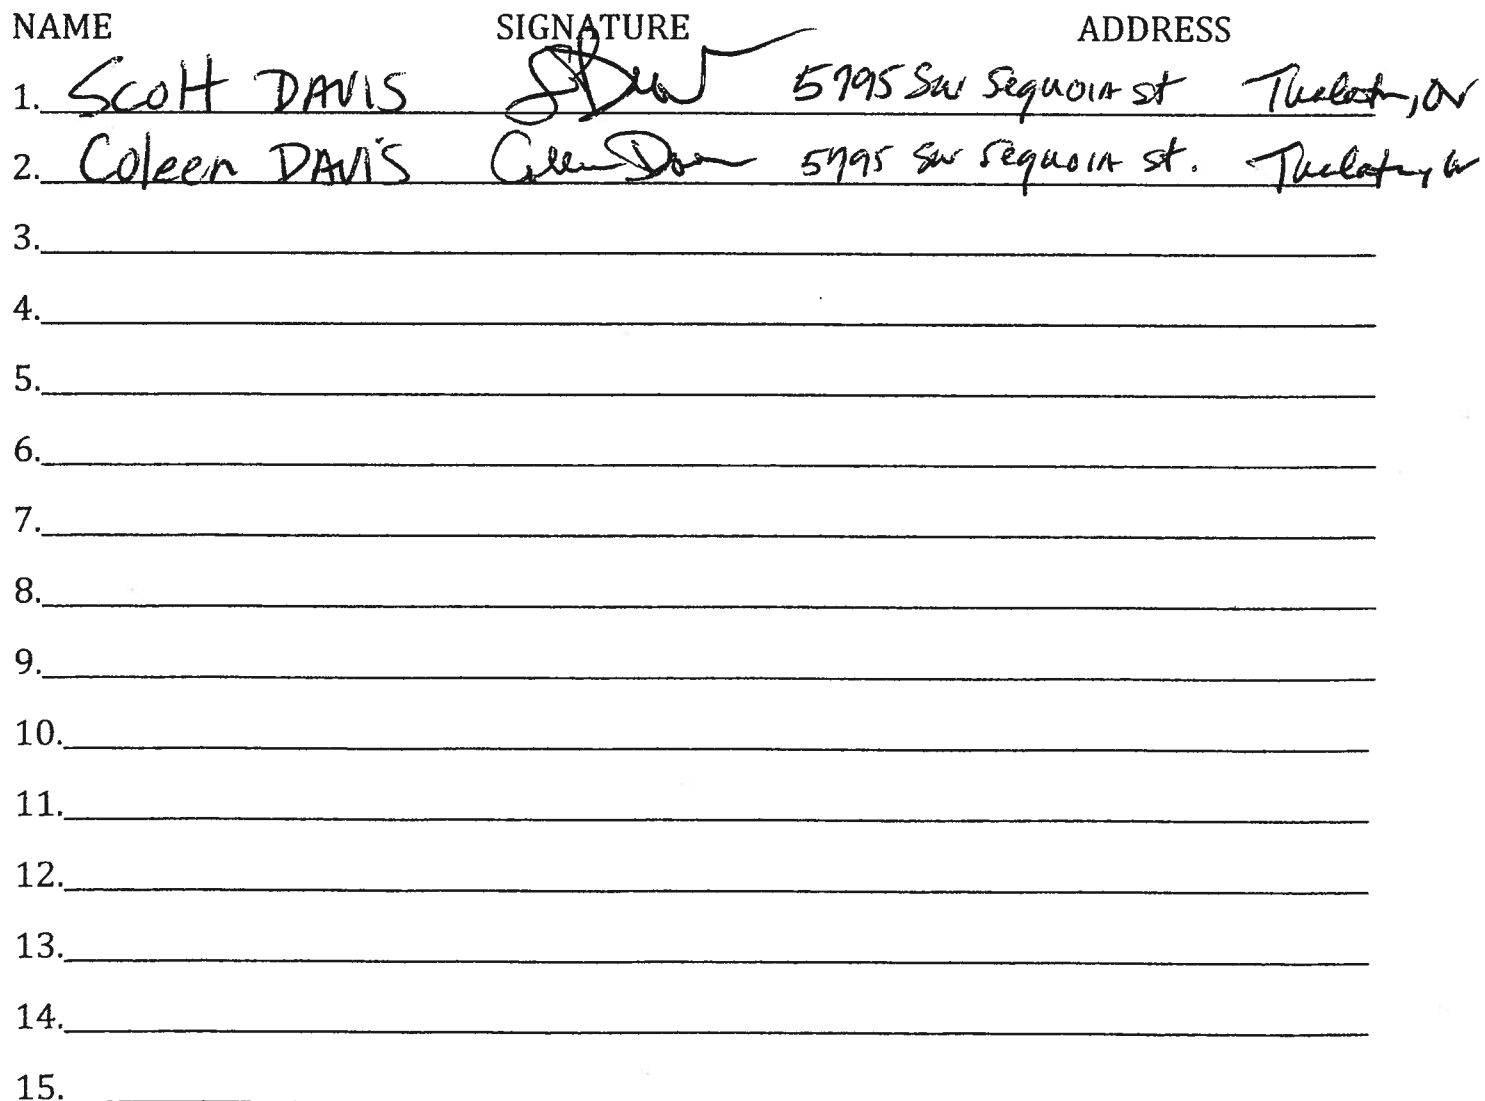 NAME SIGNATURE ADDRESS
1. Scott DAVIS 5795 SW Sequoia st Tualatin, Or
2. Coleen DAVIS Coleen Davis 5795 SW Sequoia st. Tualatin, Or
3.
4.
5.
6.
7.
8.
9.
10.
11.
12.
13.
14.
15.